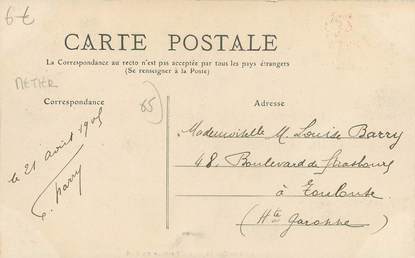 6€
CARTE POSTALE
La Correspondance au recto n'est pas acceptée par tous les pays étrangers
(Se renseigner à la Poste)
METIER
Correspondance
65
Adresse
le 21 août 1905
Mademoiselle M. Louise Barry
48, Boulevard de Strasbourg
à Toulouse
(Hte Garonne)
Barry